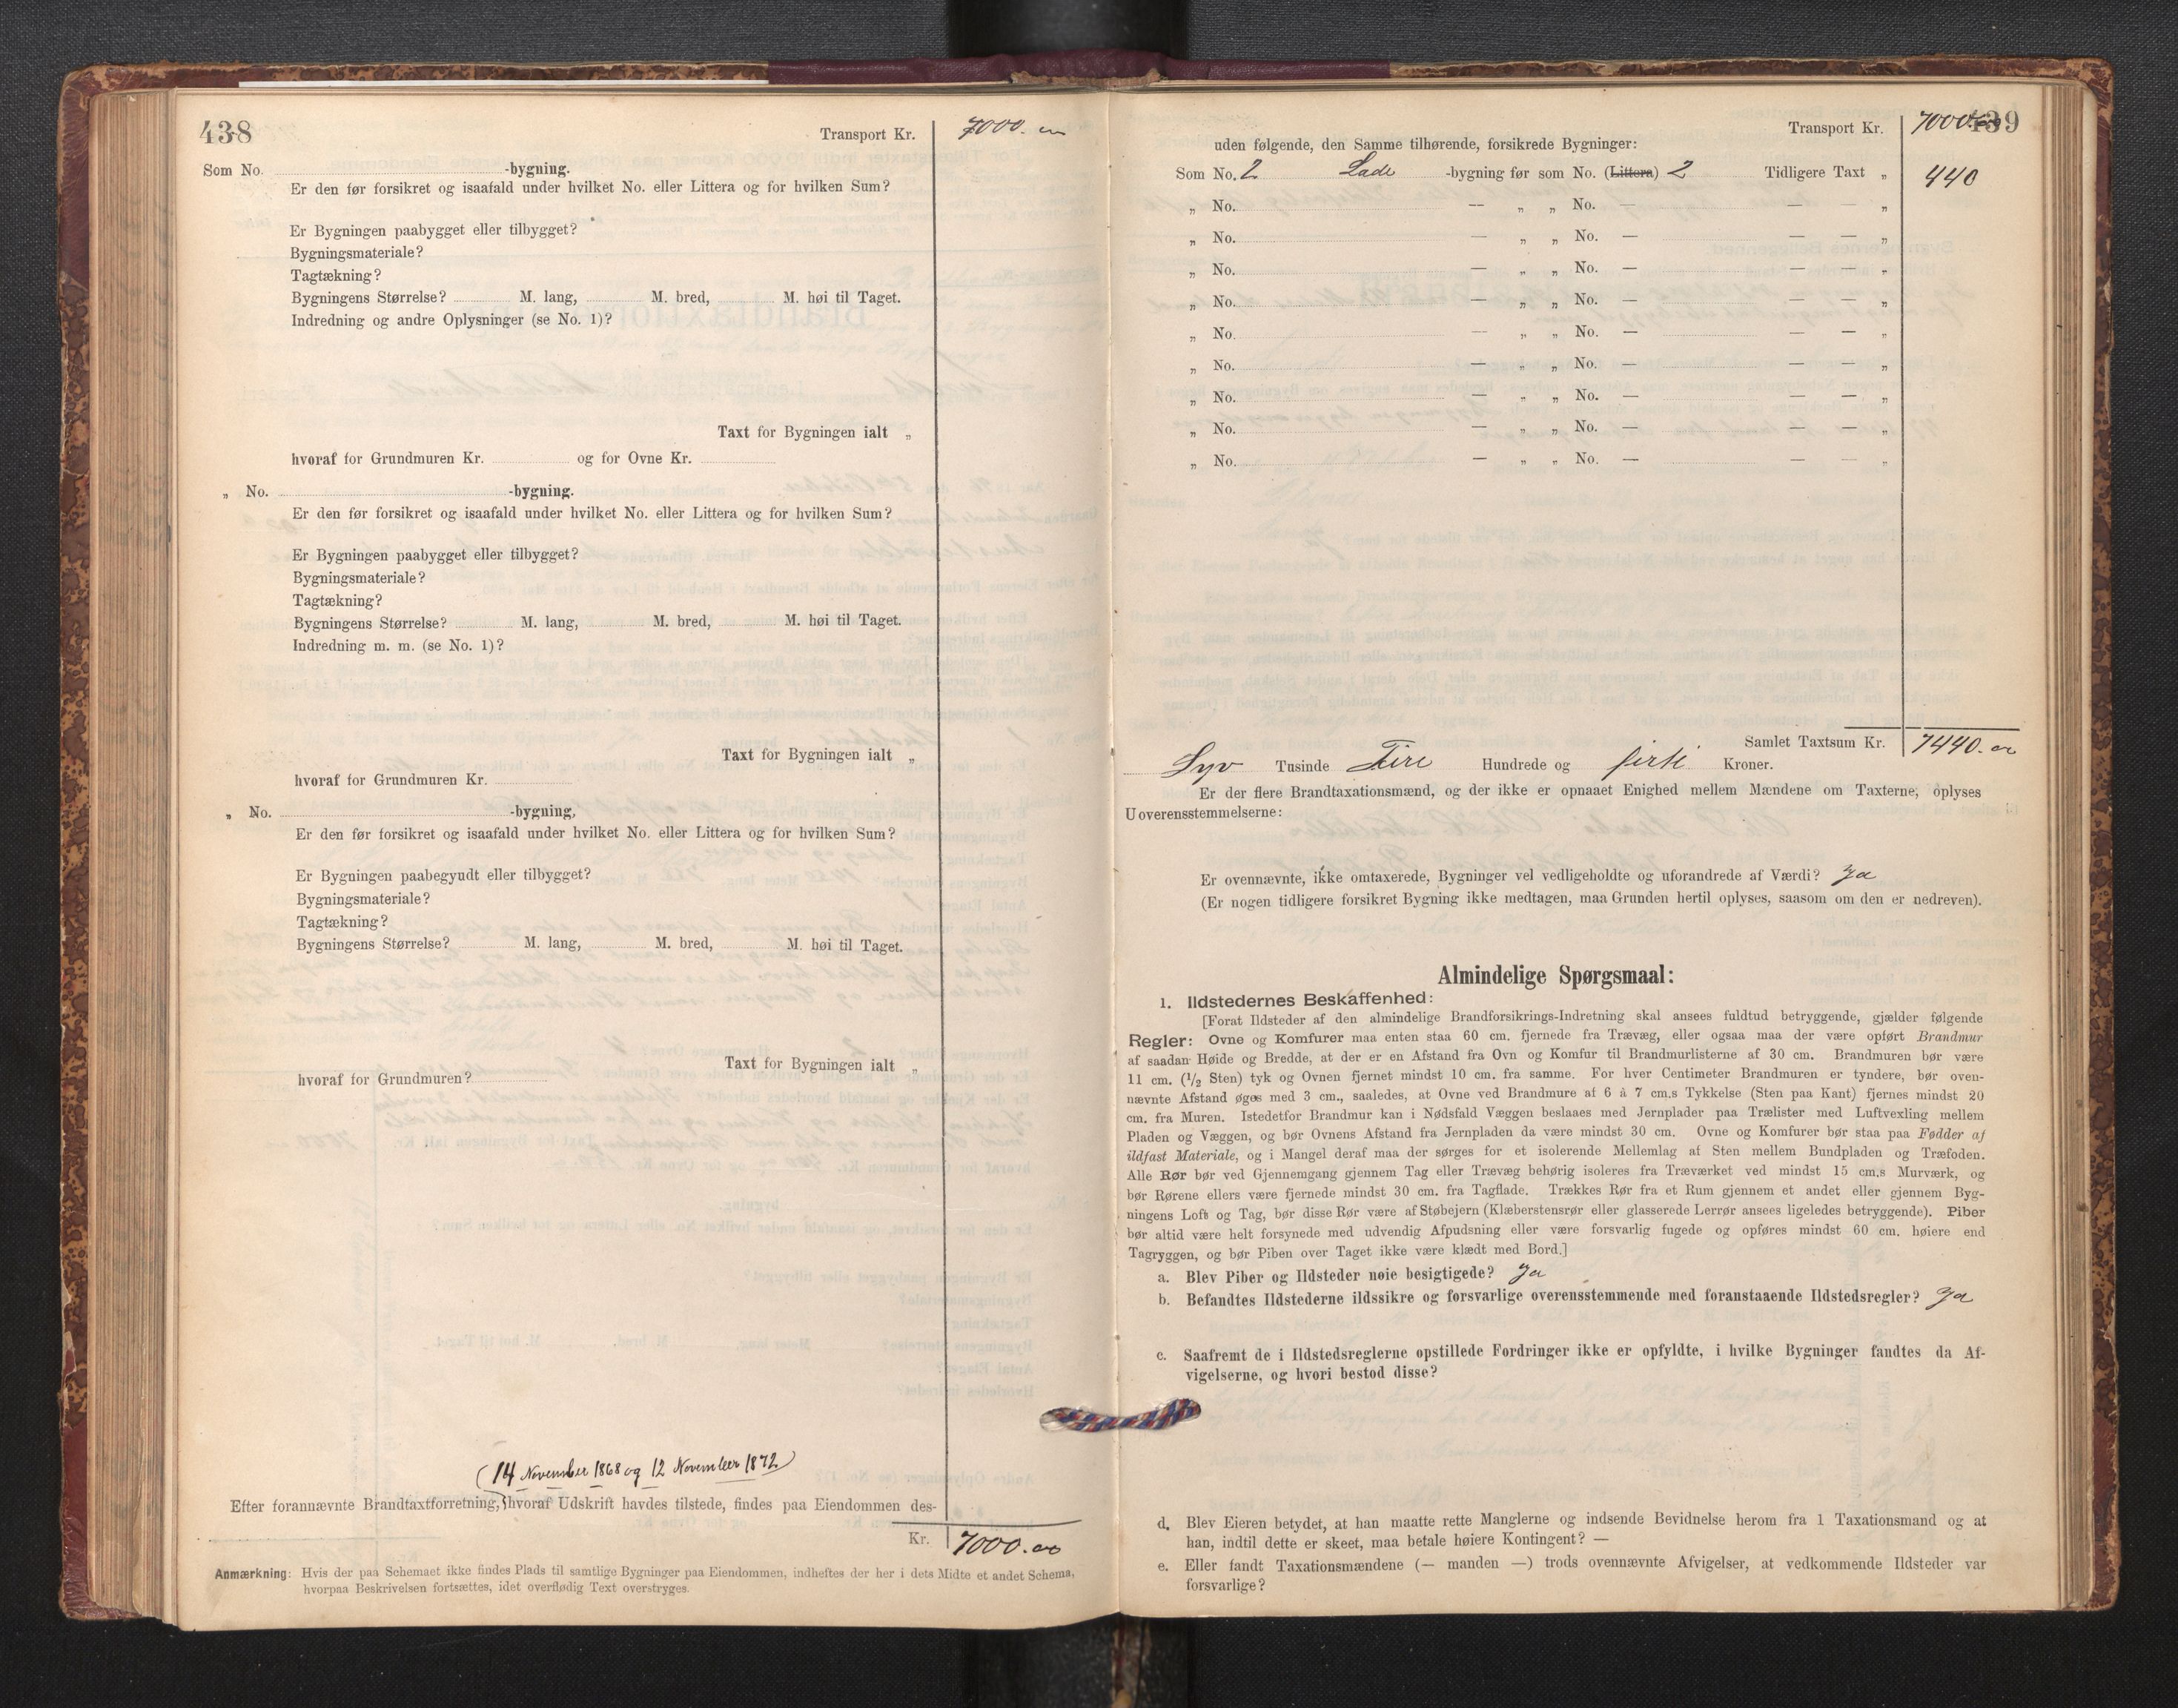 438
Transport Kr. 7000.
Som No. -bygning.
Er den før forsikret og isaafald under hvilket No. eller Littera og for hvilken Sum?
Er Bygningen paabygget eller tilbygget?
Bygningsmateriale?
Tagtækning?
Bygningens Størrelse? M. lang, M. bred, M. høi til Taget.
Indredning og andre Oplysninger (se No. 1)?
Taxt for Bygningen ialt „
hvoraf for Grundmuren Kr. og for Ovne Kr.
„ No. -bygning.
Er den før forsikret og isaafald under hvilket No. eller Littera og for hvilken Sum?
Er Bygningen paabygget eller tilbygget?
Bygningsmateriale?
Tagtækning?
Bygningens Størrelse? M. lang, M. bred, M. høi til Taget.
Indredning m. m. (se No. 1)?
Taxt for Bygningen ialt „
hvoraf for Grundmuren Kr.
„ No. -bygning,
Er den før forsikret og isaafald under hvilket No. eller Littera og for hvilken Sum?
Er Bygningen paabegyndt eller tilbygget?
Bygningsmateriale?
Tagtækning?
Bygningens Størrelse? M. lang, M. bred, M. høi til Taget.
Taxt for Bygningen ialt „
hvoraf for Grundmuren?
(14 November 1868 og 12 November 1872)
Efter forannævnte Brandtaxtforretning, hvoraf Udskrift havdes tilstede, findes paa Eiendommen des-
Kr. 7000.00
Anmærkning: Hvis der paa Schemaet ikke findes Plads til samtlige Bygninger paa Eiendommen, indheftes der her i dets Midte et andet Schema,
hvorpaa Beskrivelsen fortsættes, idet overflødig Text overstryges.
439
Transport Kr. 7000.
uden følgende, den Samme tilhørende, forsikrede Bygninger:
Som No. 2 Lade -bygning før som No. (Littera) 2 Tidligere Taxt „ 440
„ No. — „ „ No. — — — „
„ No. — „ „ No. — — — „
„ No. — „ „ No. — — — „
„ No. — „ „ No. — — — „
„ No. — „ „ No. — — — „
„ No. — „ „ No. — — — „
„ No. — „ „ No. — — — „
„ No. — „ „ No. — — — „
„ No. — „ „ No. — — — „
Samlet Taxtsum Kr. 7440.00
Syv Tusinde Fire Hundrede og firti Kroner.
Er der flere Brandtaxationsmænd, og der ikke er opnaaet Enighed mellem Mændene om Taxterne, oplyses
Uoverensstemmelserne:
Er ovennævnte, ikke omtaxerede, Bygninger vel vedligeholdte og uforandrede af Værdi? Ja
(Er nogen tidligere forsikret Bygning ikke medtagen, maa Grunden hertil oplyses, saasom om den er nedreven).
Almindelige Spørgsmaal:
1. Ildstedernes Beskaffenhed:
[Forat Ildsteder af den almindelige Brandforsikrings-Indretning skal ansees fuldtud betryggende, gjælder følgende
Regler: Ovne og Komfurer maa enten staa 60 cm. fjernede fra Trævæg, eller ogsaa maa der være opført Brandmur
af saadan Høide og Bredde, at der er en Afstand fra Ovn og Komfur til Brandmurlisterne af 30 cm. Brandmuren bør være
11 cm. (1/2 Sten) tyk og Ovnen fjernet mindst 10 cm. fra samme. For hver Centimeter Brandmuren er tyndere, bør oven-
nævnte Afstand øges med 3 cm., saaledes, at Ovne ved Brandmure af 6 à 7 cm.s Tykkelse (Sten paa Kant) fjernes mindst 20
cm. fra Muren. Istedetfor Brandmur kan i Nødsfald Væggen beslaaes med Jernplader paa Trælister med Luftvexling mellem
Pladen og Væggen, og bør Ovnens Afstand fra Jernpladen da være mindst 30 cm. Ovne og Komfurer bør staa paa Fødder af
ildfast Materiale, og i Mangel deraf maa der sørges for et isolerende Mellemlag af Sten mellem Bundpladen og Træfoden.
Alle Rør bør ved Gjennemgang gjennem Tag eller Trævæg behørig isoleres fra Træværket ved mindst 15 cm.s Murværk, og
bør Rørene ellers være fjernede mindst 30 cm. fra Tagflade. Trækkes Rør fra et Rum gjennem et andet eller gjennem Byg-
ningens Loft og Tag, bør disse Rør være af Støbejern (Klæberstensrør eller glasserede Lerrør ansees ligeledes betryggende). Piber
bør altid være helt forsynede med udvendig Afpudsning eller være forsvarlig fugede og opføres mindst 60 cm. høiere end
Tagryggen, og bør Piben over Taget ikke være klædt med Bord.]
a. Blev Piber og Ildsteder nøie besigtigede? Ja
b. Befandtes Ildstederne ildssikre og forsvarlige overensstemmende med foranstaaende Ildstedsregler? Ja
c. Saafremt de i Ildstedsreglerne opstillede Fordringer ikke er opfyldte, i hvilke Bygninger fandtes da Af-
vigelserne, og hvori bestod disse?
d. Blev Eieren betydet, at han maatte rette Manglerne og indsende Bevidnelse herom fra 1 Taxationsmand og at
han, indtil dette er skeet, maa betale høiere Kontingent? —
e. Eller fandt Taxationsmændene (— manden —) trods ovennævnte Afvigelser, at vedkommende Ildsteder var
forsvarlige?